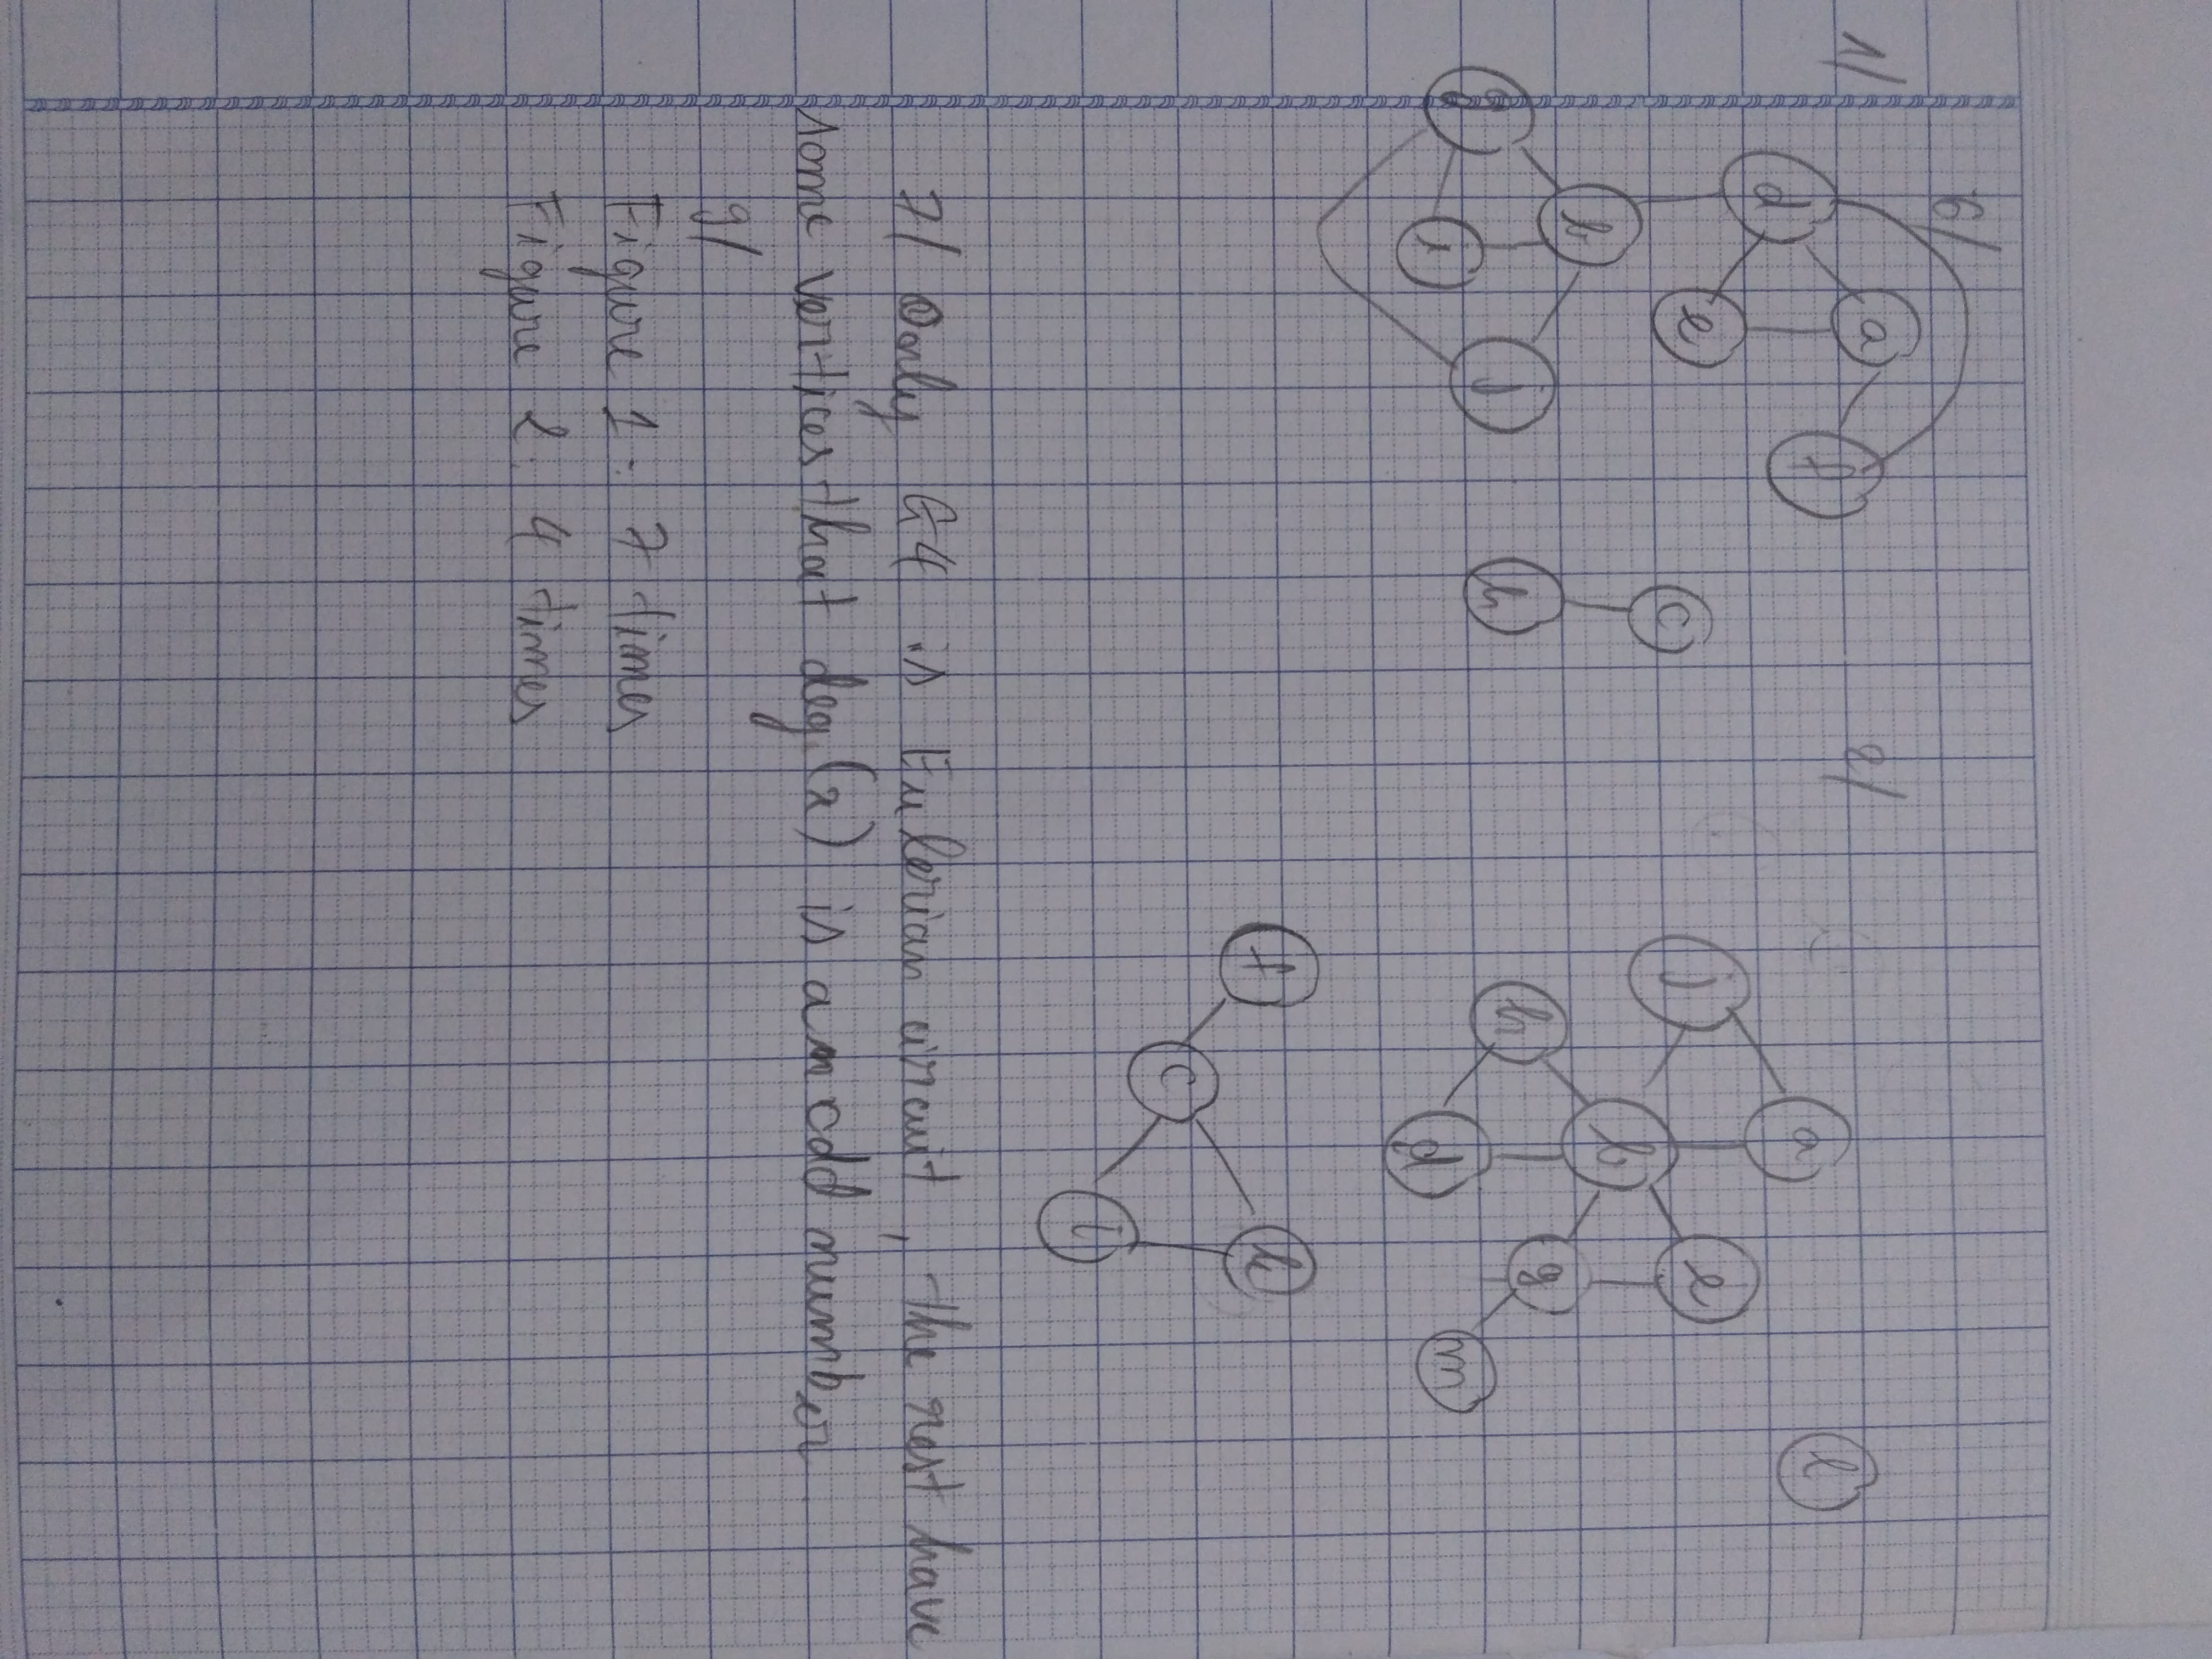 6/
1/
2/
d
a
e
f
b
i
j
c
h
j
a
h
b
d
e
g
m
l
f
c
i
k
7/ Only G4 is Eulerian circuit, the rest have
some vertices that deg(x) is an odd number
9/
Figure 1: 7 times
Figure 2: 4 times